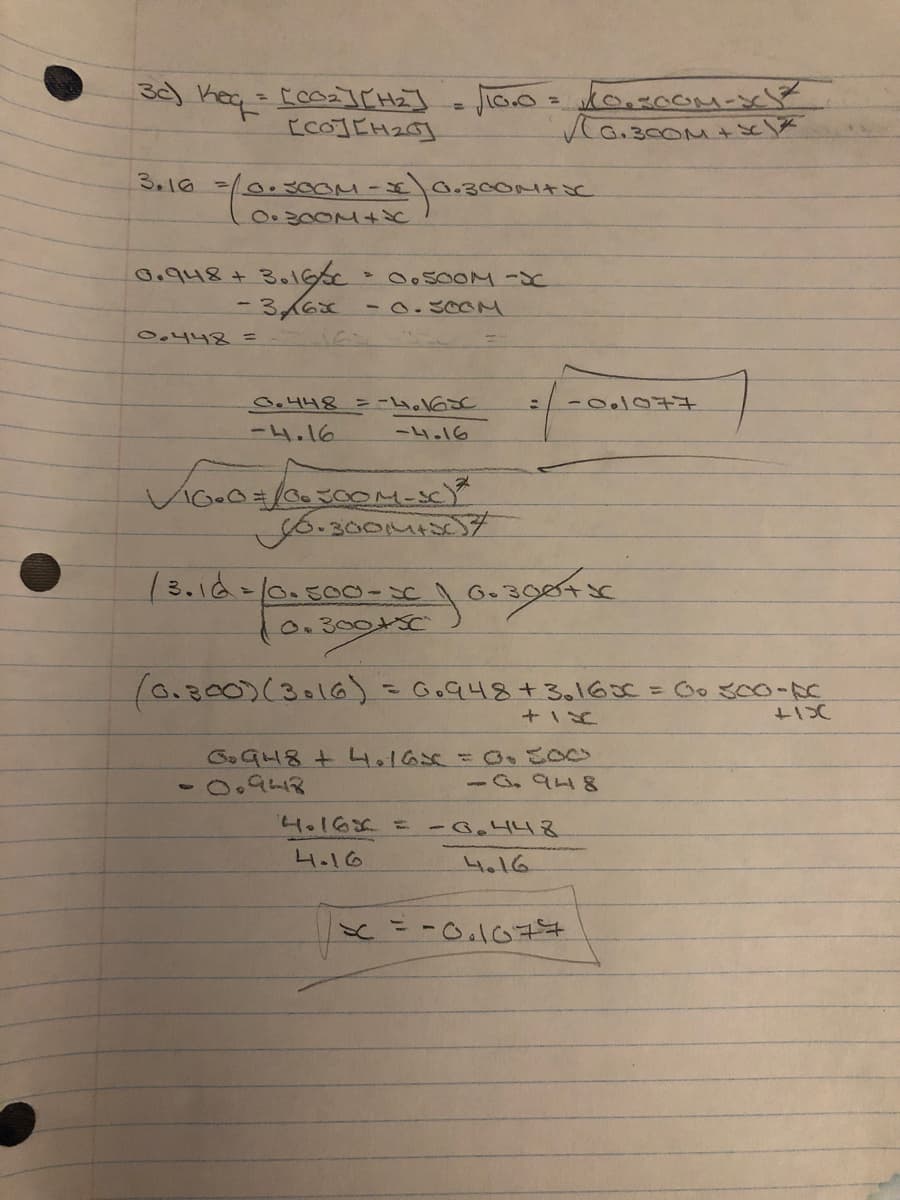 3c) Keq = [CO2][H2] = √10.0 = √(0.500M-x)²
[CO][H2O] √(0.300M+x)²
3.16 = (0.500M-x) 0.300M+x
0.300M+x
0.948 + 3.16x = 0.500M -x
-3.16x -0.500M
0.448 = =
0.448 = -4.16x = -0.1077
-4.16 -4.16
√10.0 = (0.500M-x)²
(0.300M+x)²
(3.16 = (0.500-x) 0.300+x
0.300+x
(0.300)(3.16) = 0.948 + 3.16x = 0.500-1x
+1x +1x
0.948 + 4.16x = 0.500
-0.948 -0.948
4.16x = -0.448
4.16 4.16
x = -0.1077